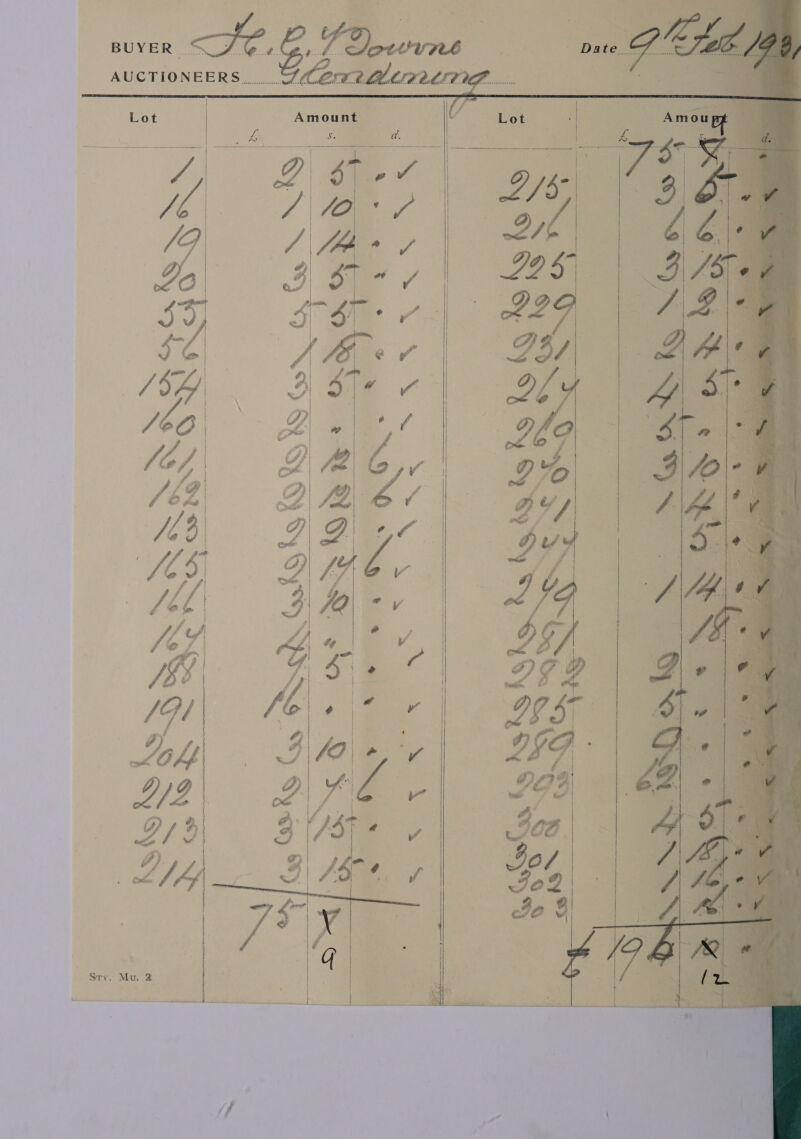 BUYER H. E. Downs Date 9th Feb 193
AUCTIONEERS Glendining
Lot Amount
£ s. d.
1 2 5 -
16 1 10 -
19 1 14 -
20 3 5 -
55 5 5 -
56 1 18 -
154 3 5 -
160 2 - -
161 2 12 6
162 2 12 6
163 2 2 -
165 2 17 6
166 3 10 -
167 4 - -
188 7 5 -
191 16 - -
204 3 10 -
212 2 7 6
213 3 15 -
214 3 15 -
75
9
Srv. Mu. 2
Lot Amount
£ s. d.
75
215 3 5 -
216 6 6 -
225 3 15 -
229 1 2 -
231 2 4 -
267 4 5 -
269 5 - -
270 3 10 -
271 1 4 -
277 5 -
279 1 14 -
281 18 -
282 2 - -
285 5 - -
289 9 - -
293 62 - -
300 4 5 -
301 1 18 -
302 1 16 -
303
£ 196 -
12